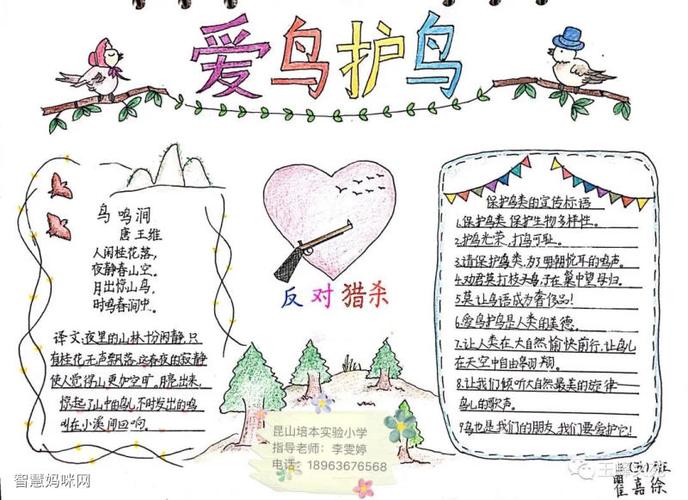 爱鸟护鸟
鸟鸣涧
唐 王维
人闲桂花落，
夜静春山空。
月出惊山鸟，
时鸣春涧中。
译文:夜里的山林十分闲静,只
有桂花无声飘落,这春夜的寂静
使人觉得山更加空旷。月亮出来,
惊起了山中鸟儿,不时发出的鸣
叫在小溪间回响。
反对猎杀
保护鸟类的宣传标语
1.保护鸟类 保护生物多样性。
2.护鸟光荣,打鸟可耻。
3.请保护鸟类,为了明朝悦耳的鸣声。
4.劝君莫打枝头鸟,子在巢中望母归。
5.莫让鸟语成为奢侈品!
6.爱鸟护鸟是人类的美德。
7.让人类在大自然愉快前行,让鸟儿
在天空中自由翱翔。
8.让我们倾听大自然最美的旋律
鸟儿的歌声。
9.鸟也是我们的朋友,我们要爱护它!
昆山培本实验小学
指导老师：李雯婷
电话：18963676568
班
瞿嘉徐
智慧妈咪网